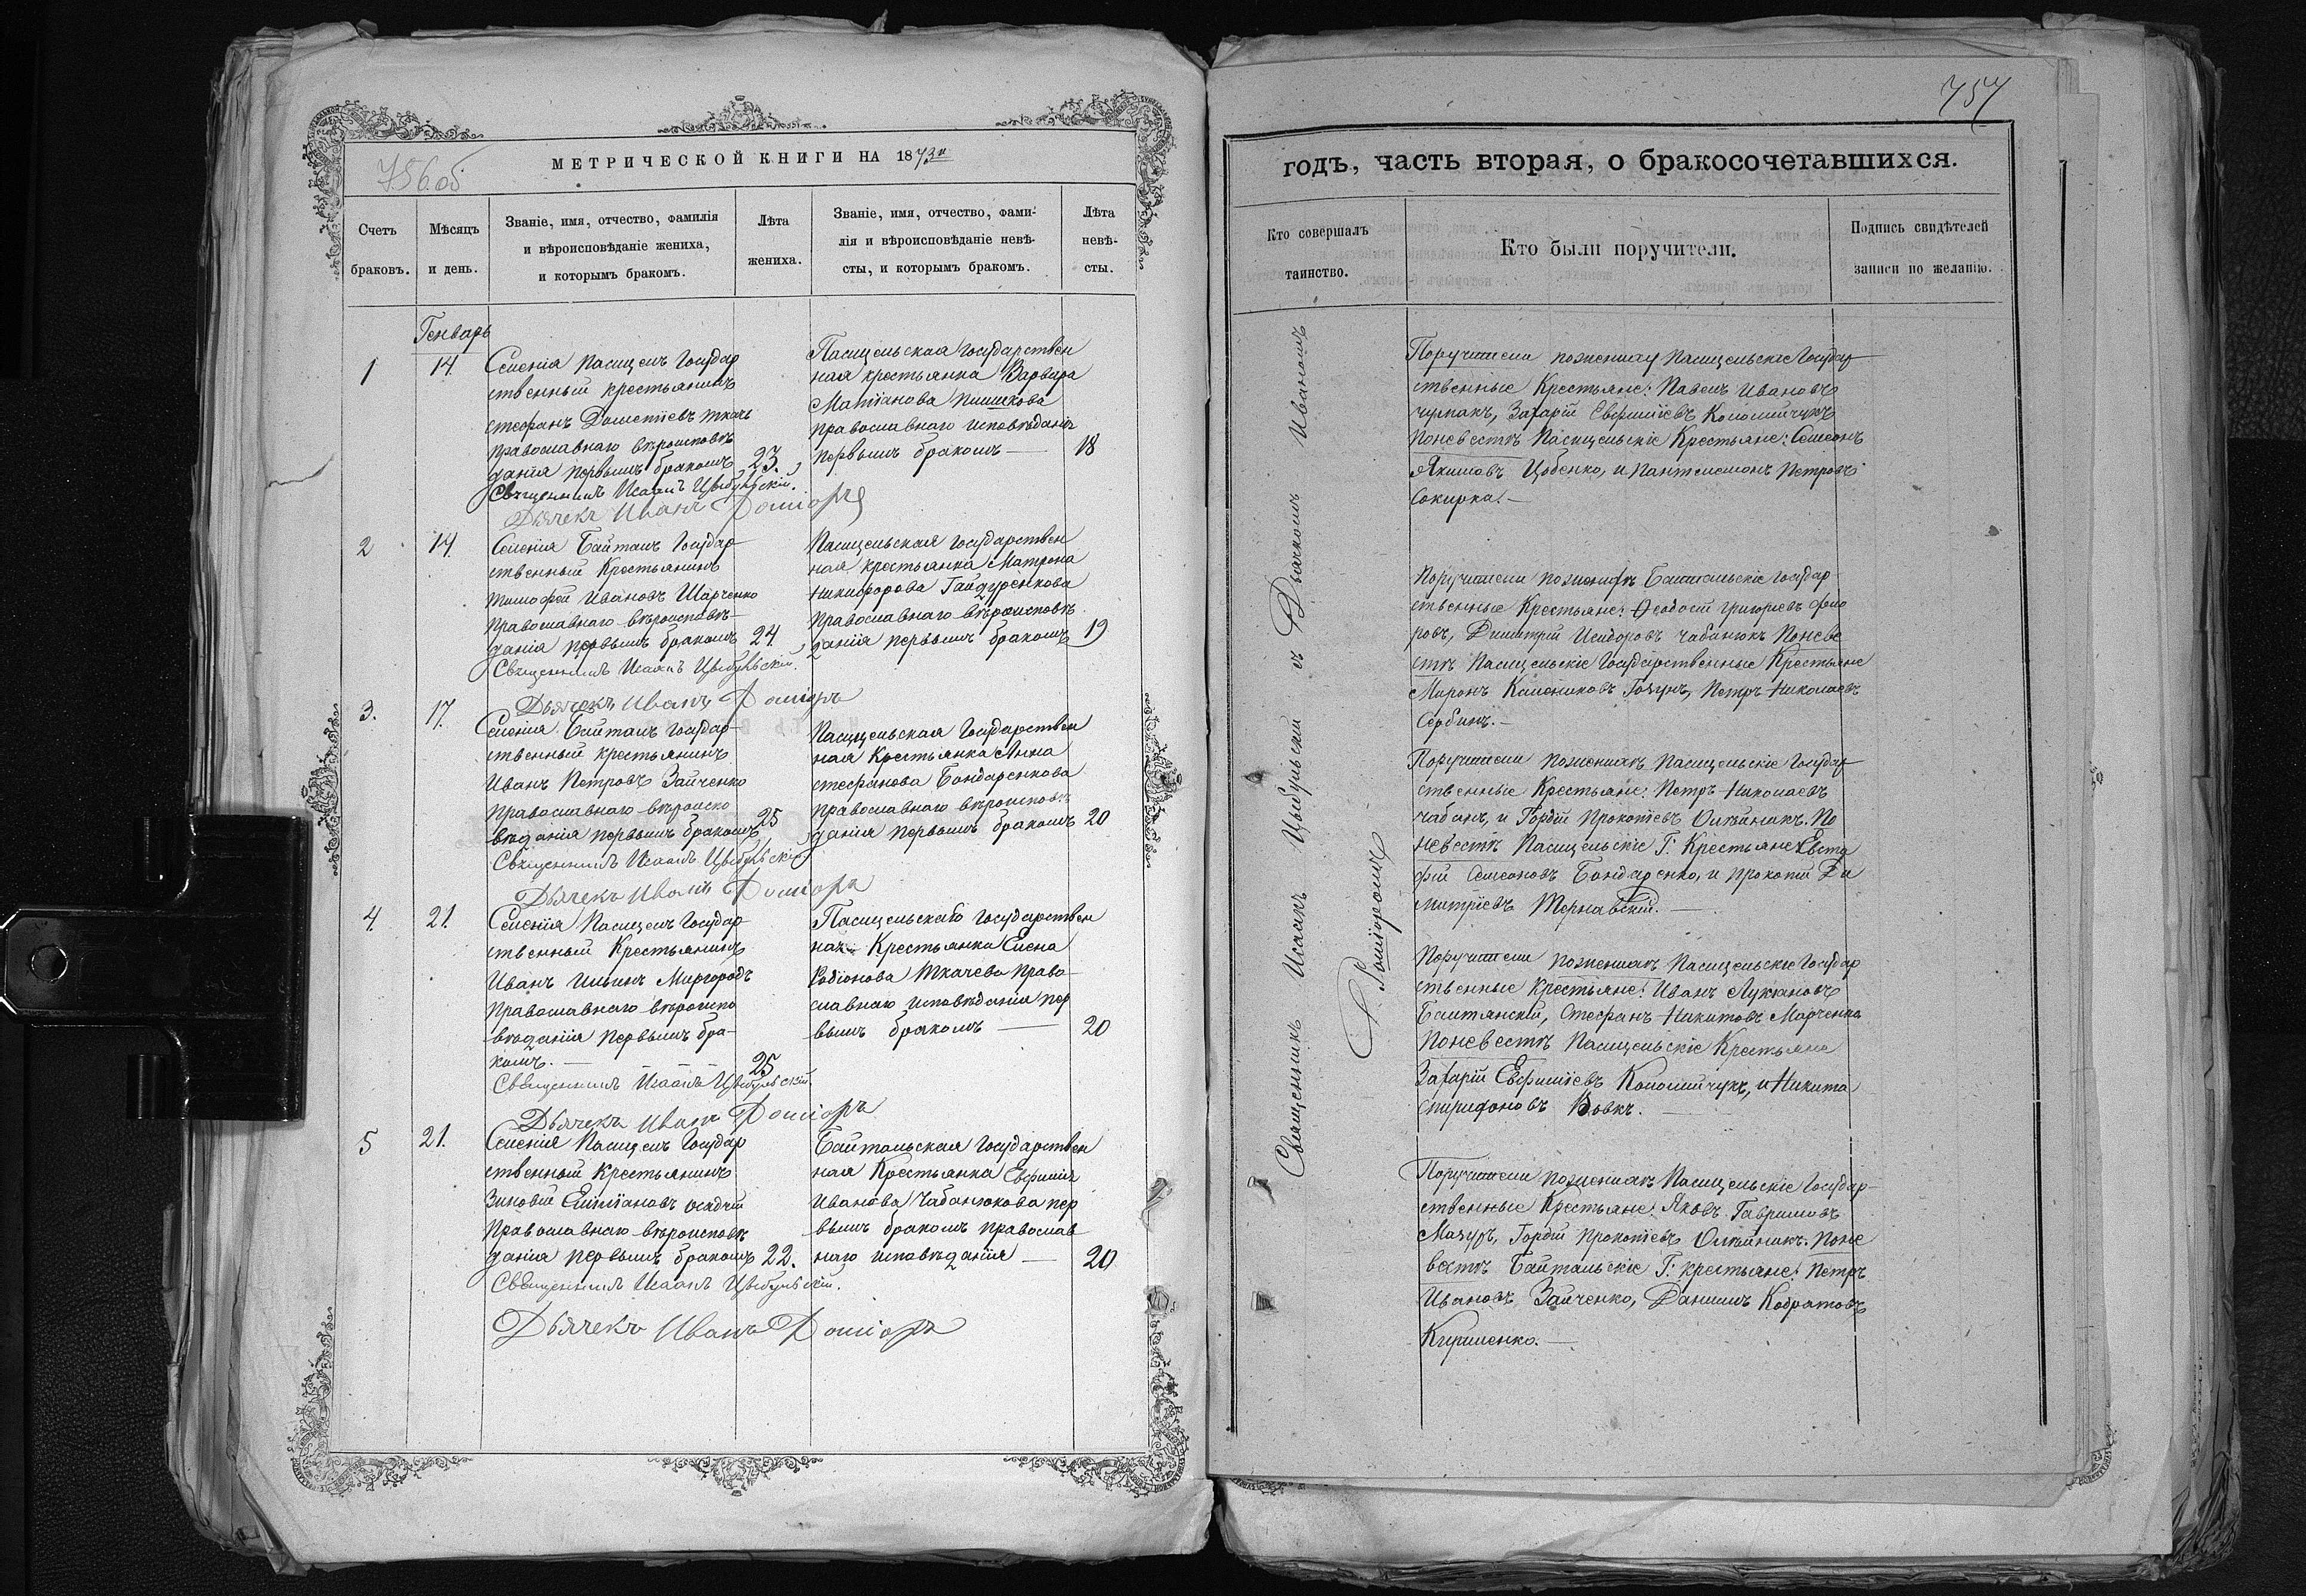 756 об
МЕТРИЧЕСКОЙ КНИГИ НА 1873й
Счетъ
браковъ.
Мѣсяцъ
и день.
Званіе, имя, отчество, фамилія
и вѣроисповѣданіе жениха,
и которымъ бракомъ.
Лѣта
жениха.
Званіе, имя, отчество, фами-
лія и вѣроисповѣданіе невѣ-
сты, и которымъ бракомъ.
Лѣта
невѣ-
сты.
Генварь
1
14.
Селенія Пасицелъ Государ
ственный крестьянинъ
стефанъ Дометіевъ ткачь
православнаго вѣроисповѣ
данія первымъ бракомъ
23.
Священникъ Исаакъ Цыбульскій.
Дьячекъ Иванъ
Пасицельская государствен
ная крестьянка Варвара
Матѳанова
православнаго исповѣданія
первымъ бракомъ —
18
2
14.
Селенія Байталъ Государ
ственный Крестьянинъ
тимофей Ивановъ Шарченко
православнаго вѣроисповѣ-
данія первымъ бракомъ
24.
Священникъ Исаакъ Цыбульскій.
Дьячекъ Иванъ
Пасицельская государствен
ная крестьянка Матрона
Никифорова Гайдуренкова
православнаго вѣроисповѣ
данія первымъ бракомъ
19
3.
17.
Селенія Байталъ Государ-
ственный крестьянинъ
Иванъ Петровъ Зайченко
православнаго вѣроиспо
вѣданія первымъ бракомъ
25
Священникъ Исаакъ Цыбульскій
Дьячекъ Иванъ
Пасицельская Государствен
ная Крестьянка Анна
стефанова Бондаренкова
православнаго вѣроисповѣ
данія первымъ бракомъ
20
4.
21.
Селенія Пасицелъ Государ
ственный Крестьянинъ
Иванъ Ильинъ Миргородъ
православнаго вѣроиспо
вѣданія первымъ бра-
комъ. —
25
Священникъ Исаакъ Цыбульскій.
Дьячекъ Иванъ
Государствен
ная Крестьянка Елена
Родіонова Ткачева право
славнаго исповѣданія пер
вымъ бракомъ —
20
5
21.
Селенія Пасицелъ Государ
ственный Крестьянинъ
Зиновій осадчій
православнаго вѣроисповѣ
данія первымъ бракомъ
22.
Священникъ Исаакъ Цыбульскій.
Дьячекъ Иванъ
Байтальская Государствен
ная Крестьянка Евфимія
Иванова Чабанюкова пер
вымъ бракомъ православ
наго исповѣданія —
20
757
годъ, часть вторая, о бракосочетавшихся.
Кто совершалъ
таинство.
Кто были поручители.
Подпись свидѣтелей
записи по желанію.
Священникъ Исаакъ Цыбульскій съ Дьячкомъ Иваномъ
Поручители по жениху Пасицельскіе Государ
ственные Крестьяне: Павелъ Ивановъ
чумакъ, Захарій Евфиміевъ Коломійчукъ
По невестѣ Пасицельскіе Крестьяне: Семеонъ
Якимовъ Цобенко, и Пантелемонъ Петровъ
Сокирка. —
Поручители по женихѣ Байтальскіе государ-
ственные Крестьяне: Ѳеодосій григорьевъ фло
ровъ, Димитрій Исидоровъ чабанюкъ По неве
стѣ Пасицельскіе Государственные Крестьяне
Миронъ Голунъ, Петръ Николаевъ
Сербинъ. —
Поручители по женихѣ Пасицельскіе Государ
ственные Крестьяне: Петръ Николаевъ
чабанъ, и Гордій Прокопіевъ Олѣйникъ. По
невестѣ Пасицельскіе Г. Крестьяне Евста
фій Семеоновъ Бондаренко, и прокопій Ди
митріевъ Тернавскій. —
Поручители по женихѣ Пасицельскіе Государ
ственные Крестьяне: Иванъ Лукіановъ
Балтянскій, Стефанъ Никитовъ Марченко
По невестѣ Пасицельскіе Крестьяне
Захарій Евфиміевъ Коломійчукъ, и Никита
спиридоновъ Вовкъ. —
Поручители по женихѣ Пасицельскіе Государ-
ственные Крестьяне: Яковъ Гавриловъ
Мазуръ, Гордій Прокопіевъ Олѣйникъ. По не
вестѣ Байтальскіе Г. крестьяне: Петръ
Ивановъ Зайченко, Даніилъ Кодратовъ
Кириленко. —